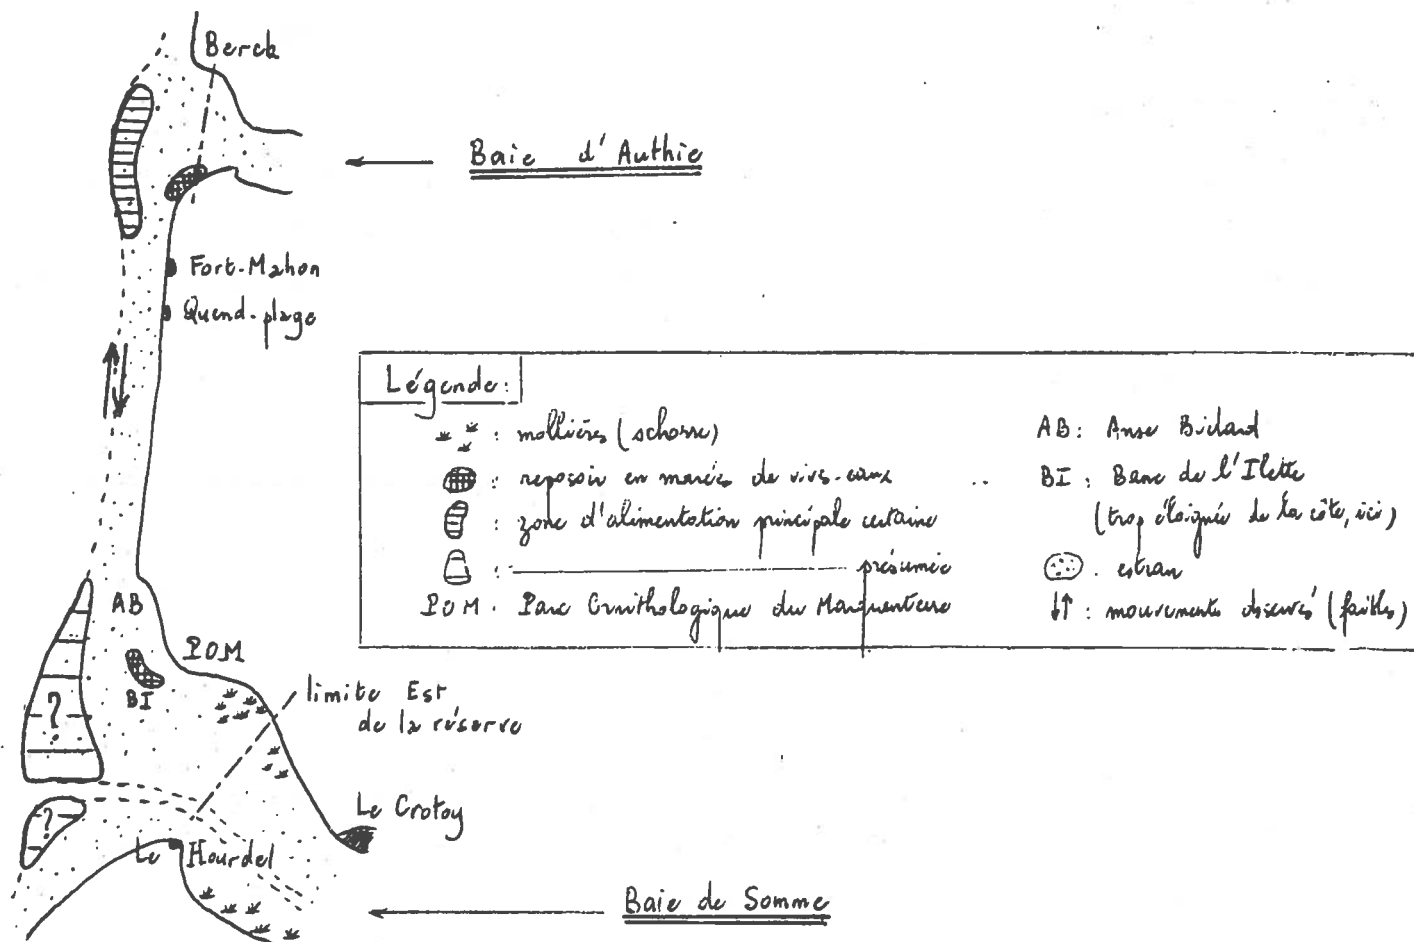 Berck
Baie d'Authie
Fort-Mahon
Quend-plage
Légende:
: mollières (schorre)
: reposoir en marées de vives-eaux
: zone d'alimentation principale certaine
: ——— présumée
POM. Parc Ornithologique du Marquenterre
AB: Anse Bidard
BI: Banc de l'Ilette
(trop éloignée de la côte, ici)
. estran
↓↑: mouvements observés (faibles)
AB
POM
BI
?
limite Est
de la réserve
?
Le Crotoy
Le Hourdel
Baie de Somme